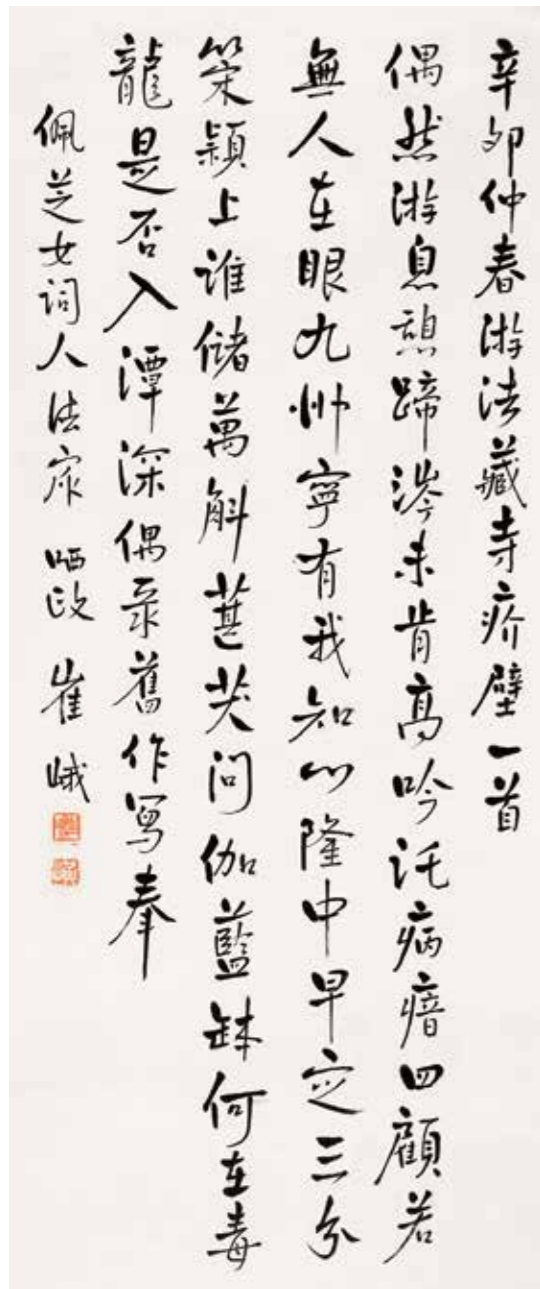 辛卯仲春游法藏寺疥壁一首
偶然游息憩蹄涔未肯高吟託病瘖四顧若
無人在眼九州寧有我知心隆中早定三分
策潁上誰儲萬斛葚笑問伽藍缽何在毒
龍是否入潭深偶录舊作写奉
佩芝女詞人法家哂政 崔峨